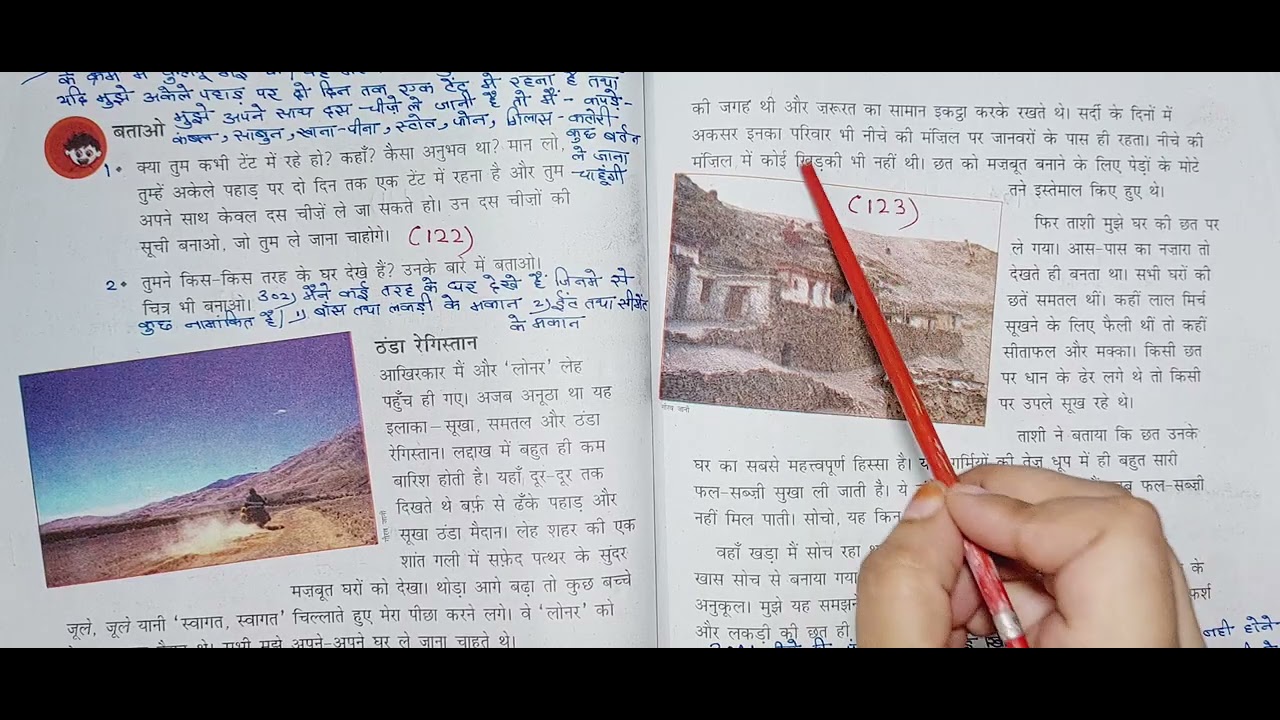 के क्रम में
यदि मुझे अकेले पहाड़ पर दो दिन तक एक टेंट में रहना है तथा
मुझे अपने साथ दस चीज़ें ले जानी है तो मैं - कपड़े-
कंबल, साबुन, खाना-पीना, स्टोव, फोन, गिलास - कटोरी
कुछ बर्तन
ले जाना
चाहूंगी
बताओ
1. क्या तुम कभी टेंट में रहे हो? कहाँ? कैसा अनुभव था? मान लो,
तुम्हें अकेले पहाड़ पर दो दिन तक एक टेंट में रहना है और तुम
अपने साथ केवल दस चीज़ें ले जा सकते हो। उन दस चीज़ों की
सूची बनाओ, जो तुम ले जाना चाहोगे। (122)
2. तुमने किस-किस तरह के घर देखे हैं? उनके बारे में बताओ।
चित्र भी बनाओ। उ०२) मैंने कई तरह के घर देखे हैं जिनमे से
कुछ नामांकित हैं। 1) बाँस तथा लकड़ी के मकान 2) ईंट तथा सीमेंट
के मकान
ठंडा रेगिस्तान
आखिरकार मैं और ‘लोनर’ लेह
पहुँच ही गए। अजब अनूठा था यह
इलाका – सूखा, समतल और ठंडा
रेगिस्तान। लद्दाख में बहुत ही कम
बारिश होती है। यहाँ दूर-दूर तक
दिखते थे बर्फ़ से ढँके पहाड़ और
सूखा ठंडा मैदान। लेह शहर की एक
शांत गली में सफ़ेद पत्थर के सुंदर
मज़बूत घरों को देखा। थोड़ा आगे बढ़ा तो कुछ बच्चे
जूले, जूले यानी ‘स्वागत, स्वागत’ चिल्लाते हुए मेरा पीछा करने लगे। वे ‘लोनर’ को
थे। सभी मुझे अपने-अपने घर ले जाना चाहते थे।
की जगह थी और ज़रूरत का सामान इकट्ठा करके रखते थे। सर्दी के दिनों में
अकसर इनका परिवार भी नीचे की मंज़िल पर जानवरों के पास ही रहता। नीचे की
मंज़िल में कोई खिड़की भी नहीं थी। छत को मज़बूत बनाने के लिए पेड़ों के मोटे
तने इस्तेमाल किए हुए थे।
(123)
फिर ताशी मुझे घर की छत पर
ले गया। आस-पास का नज़ारा तो
देखते ही बनता था। सभी घरों की
छतें समतल थीं। कहीं लाल मिर्च
सूखने के लिए फैली थीं तो कहीं
सीताफल और मक्का। किसी छत
पर धान के ढेर लगे थे तो किसी
पर उपले सूख रहे थे।
ताशी ने बताया कि छत उनके
घर का सबसे महत्त्वपूर्ण हिस्सा है। गर्मियों की तेज़ धूप में ही बहुत सारी
फल-सब्ज़ी सुखा ली जाती है। ये फल-सब्ज़ी
नहीं मिल पाती। सोचो, यह
वहाँ खड़ा मैं सोच रहा
खास सोच से बनाया गया के
अनुकूल। मुझे यह फ़र्श
और लकड़ी की छत ही
नही होने